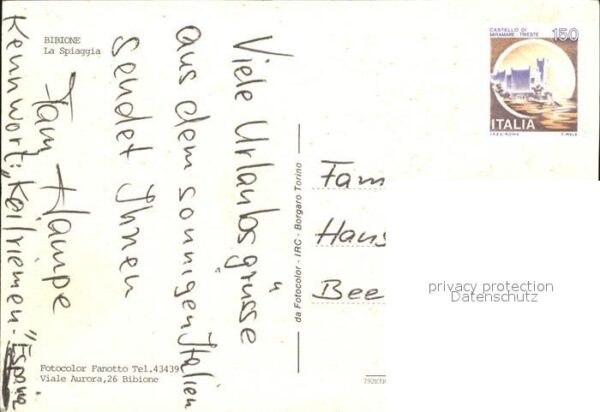 BIBIONE
La Spiaggia
Viele Urlaubsgrüsse
aus dem sonnigen Italien
sendet Ihnen
Fam Hampe
Kennwort: „Keilriemen"
España
Fotocolor Fanotto Tel.43439
Viale Aurora,26 Bibione
da Fotocolor - IRC - Borgaro Torino
CASTELLO DI
MIRAMARE TRIESTE
150
ITALIA
I.P.Z.S. ROMA
Fam
Hans
Bee
privacy protection
Datenschutz